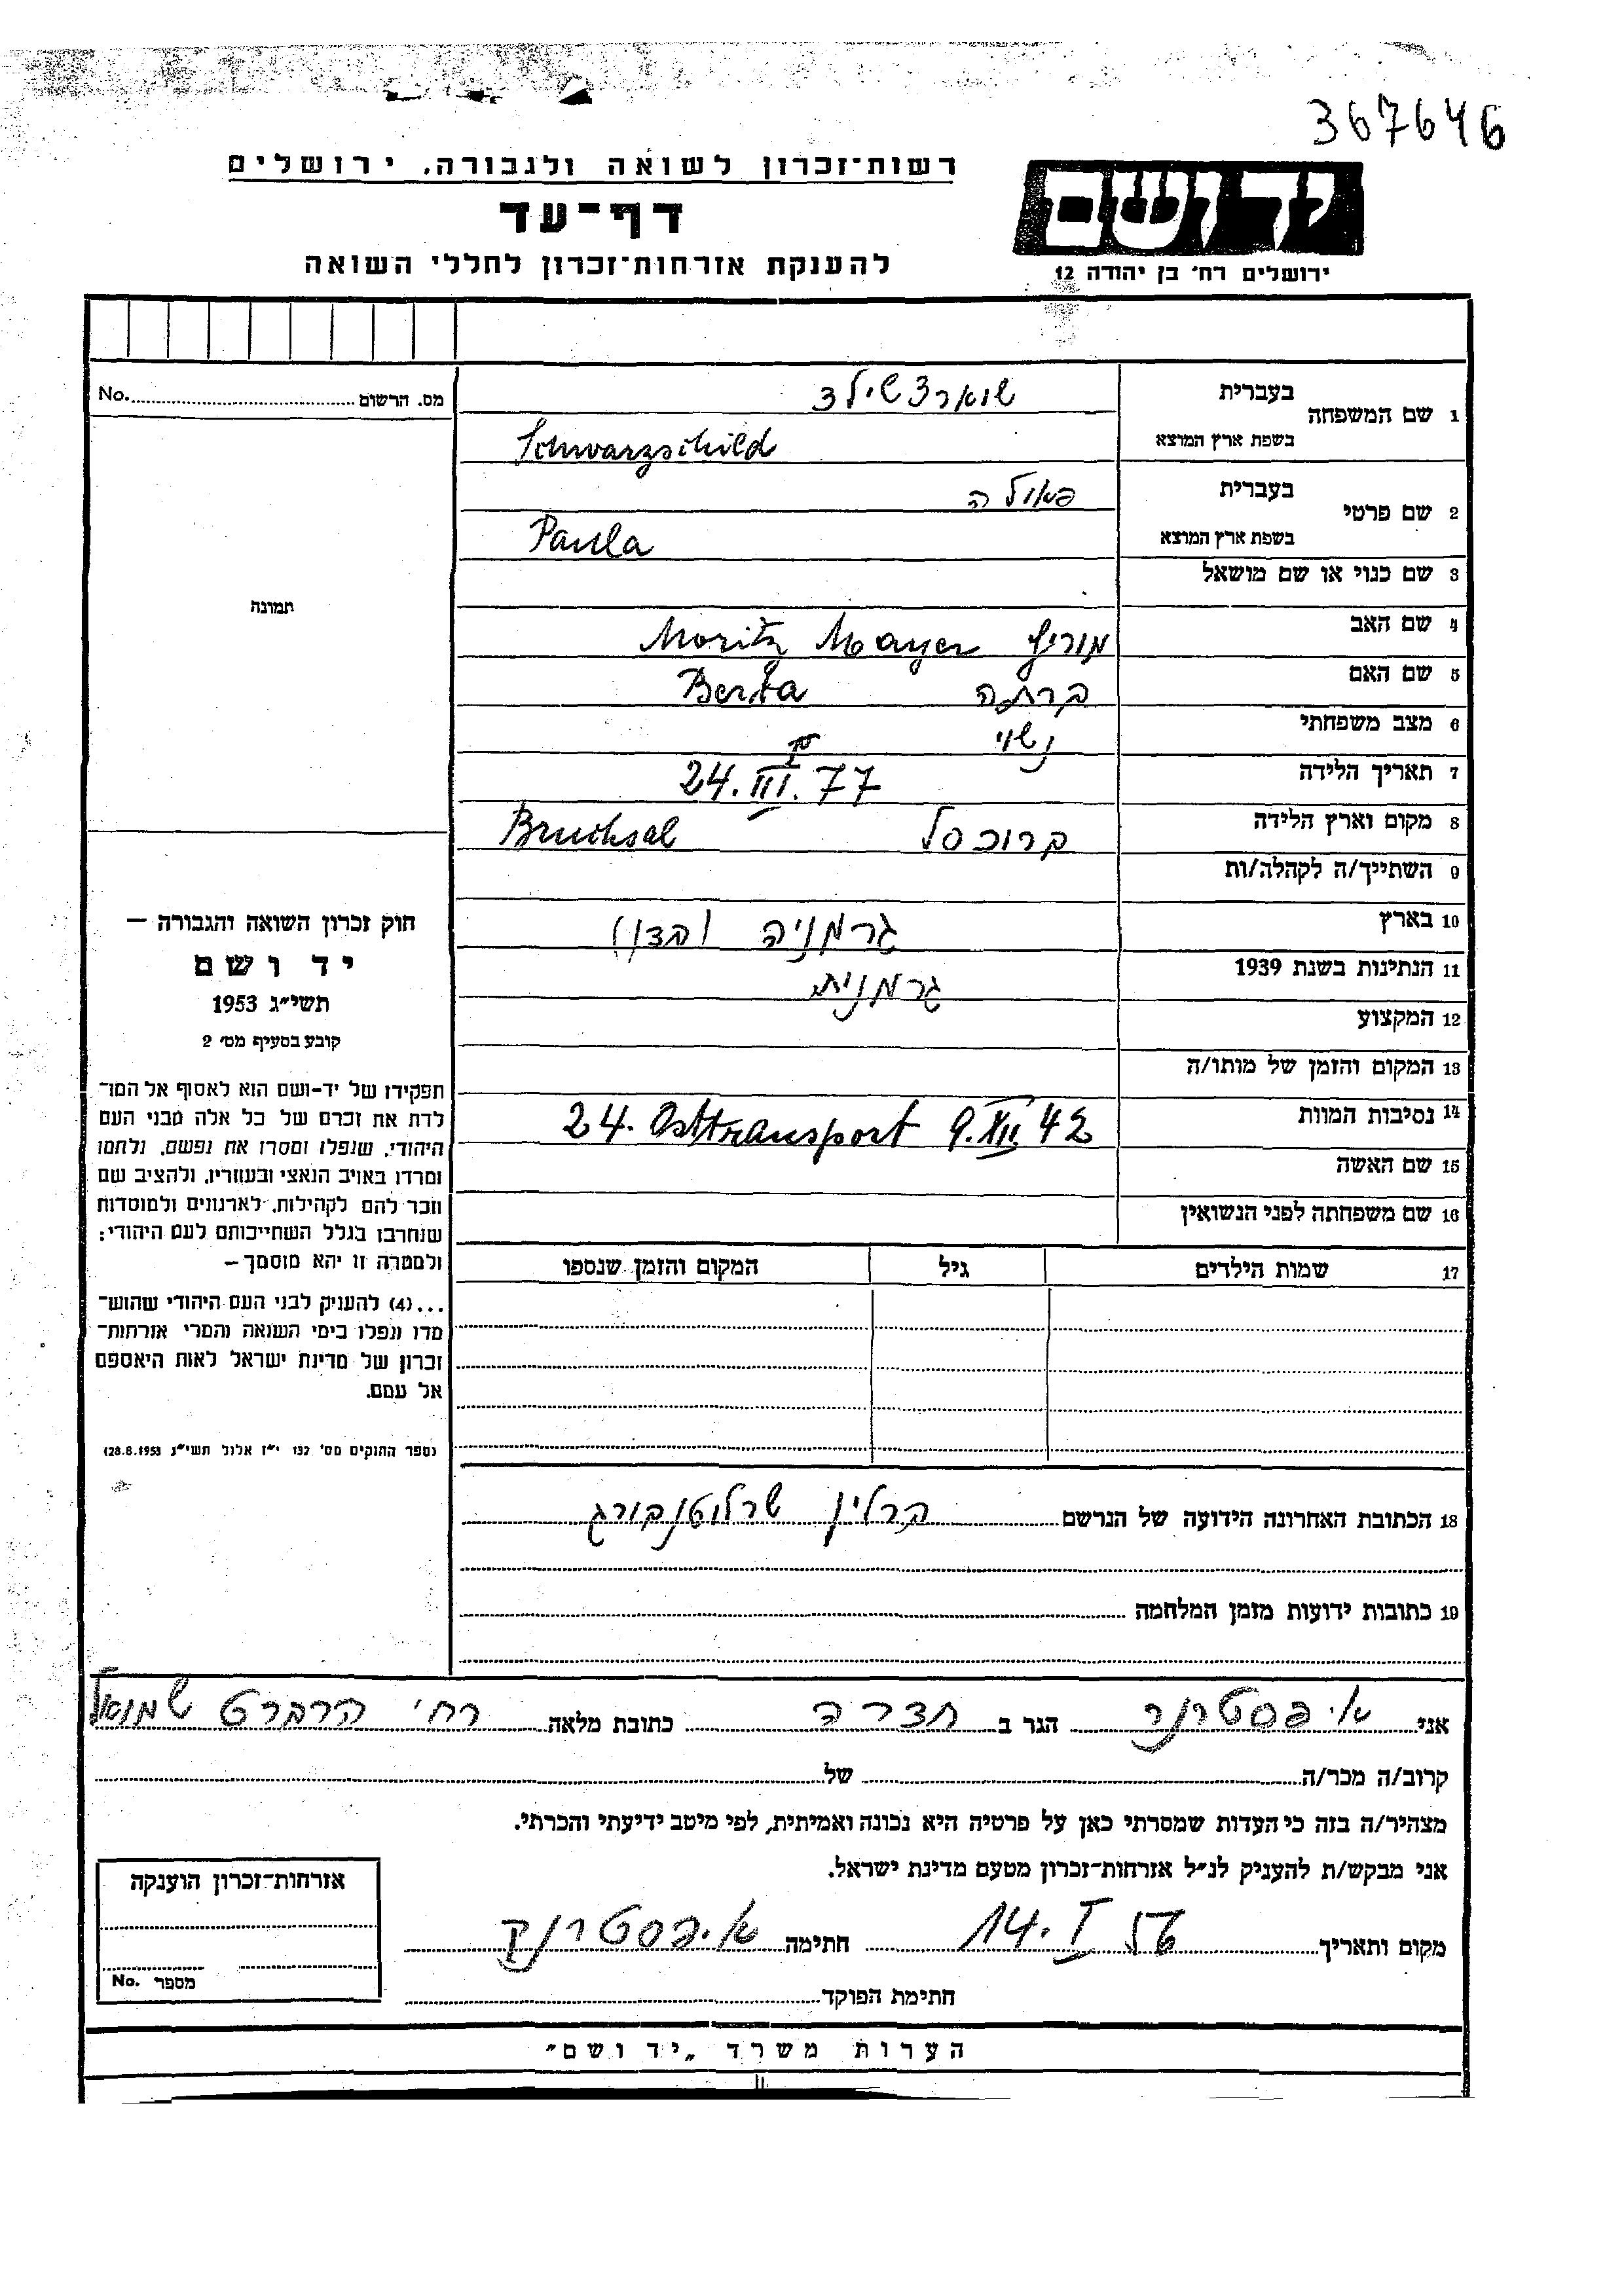 367646
רשות־זכרון לשואה ולגבורה, ירושלים
דף־עד
להענקת אזרחות־זכרון לחללי השואה
יד ושם
ירושלים רח' בן יהודה 12
מס. הרשום No.
1 שם המשפחה
בעברית
שווארצשילד
בשפת ארץ המוצא
Schwarzschild
2 שם פרטי
בעברית
פאולה
בשפת ארץ המוצא
Paula
3 שם כנוי או שם מושאל
תמונה
4 שם האב
מוריץ Moritz Mayer
5 שם האם
ברתה Berta
6 מצב משפחתי
נשוי
7 תאריך הלידה
24. III. 77
8 מקום וארץ הלידה
ברוכסל Bruchsal
9 השתייך/ה לקהלה/ות
10 בארץ
גרמניה (בדן)
11 הנתינות בשנת 1939
גרמנית
12 המקצוע
13 המקום והזמן של מותו/ה
14 נסיבות המוות
24. Osttransport 9. XII. 42
15 שם האשה
16 שם משפחתה לפני הנשואין
17 שמות הילדים
גיל
המקום והזמן שנספו
חוק זכרון השואה והגבורה —
יד ושם
תשי"ג 1953
קובע בסעיף מס' 2
תפקידו של יד-ושם הוא לאסוף אל המו־
לדת את זכרם של כל אלה מבני העם
היהודי, שנפלו ומסרו את נפשם, נלחמו
ומרדו באויב הנאצי ובעוזריו, ולהציב שם
וזכר להם לקהילות, לארגונים ולמוסדות
שנחרבו בגלל השתייכותם לעם היהודי;
ולמטרה זו יהא מוסמך —
...(4) להעניק לבני העם היהודי שהוש־
מדו ונפלו בימי השואה והמרי אזרחות־
זכרון של מדינת ישראל לאות היאספם
אל עמם.
(ספר החוקים מס' 132 י"ז אלול תשי"ג 28.8.1953)
18 הכתובת האחרונה הידועה של הנרשם ברלין שרלוטנבורג
19 כתובות ידועות מזמן המלחמה
אני א. פסטרנק הגר ב חדרה כתובת מלאה רח' הרברט שמואל
קרוב/ה מכר/ה של
מצהיר/ה בזה כי העדות שמסרתי כאן על פרטיה היא נכונה ואמיתית, לפי מיטב ידיעתי והכרתי.
אני מבקש/ת להעניק לנ"ל אזרחות־זכרון מטעם מדינת ישראל.
מקום ותאריך 14. I 56 חתימה א. פסטרנק
חתימת הפוקד
אזרחות־זכרון הוענקה
מספר No.
הערות משרד „יד ושם"